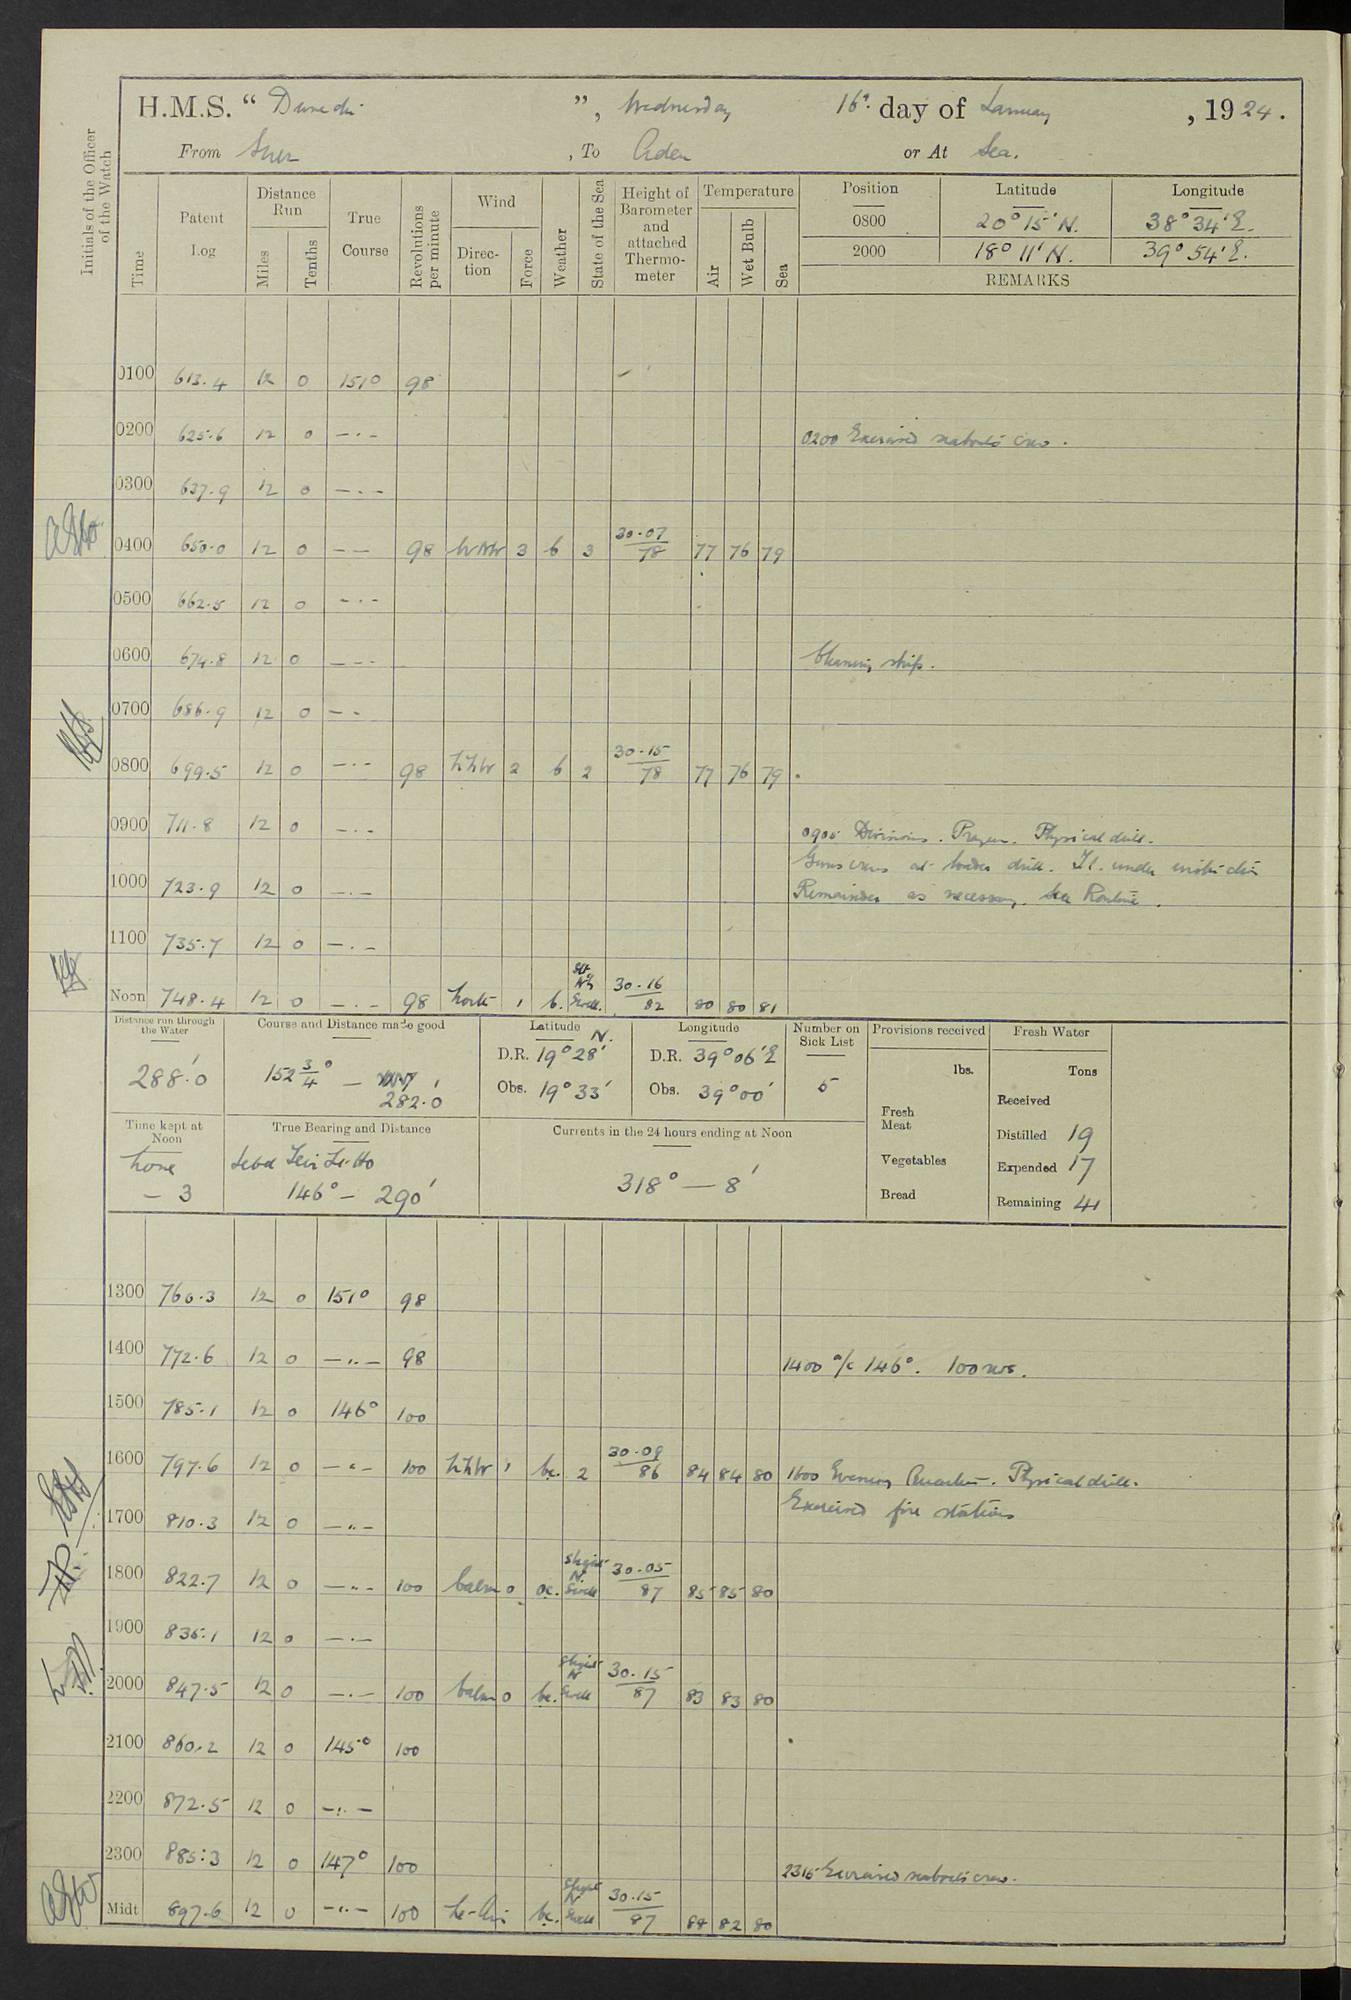 H.M.S. “ Dunedin ”, Wednesday 16th day of January, 1924.
From Suez, To Aden or At Sea.
Initials of the Officer of the Watch
Time Patent Log Distance Run Miles Tenths True Course Revolutions per minute Wind Direction Force Weather State of the Sea Height of Barometer and attached Thermometer Temperature Air Wet Bulb Sea
Position Latitude Longitude
0800 20° 15' N. 38° 34' E.
2000 18° 11' N. 39° 54' E.
REMARKS
0100 613.4 12 0 151° 98
0200 625.6 12 0 —·— 0200 Exercised seaboat's crew.
0300 637.9 12 0 —·—
0400 650.0 12 0 — — 98 WNW 3 b 3 30.07 78 77 76 79
0500 662.5 12 0 —·—
0600 674.8 12 0 —·— Cleaning ship.
0700 686.9 12 0 — —
0800 699.5 12 0 —·— 98 NNW 2 b 2 30.15 78 77 76 79
0900 711.8 12 0 —·— 0905 Divisions. Prayers. Physical drill.
Guns crews at loader drill. under instruction
1000 723.9 12 0 —·— Remainder as necessary. Sea Routine.
1100 735.7 12 0 —·—
Noon 748.4 12 0 —·— 98 North 1 b. Swell. 30.16 82 80 80 81
Distance run through the Water
288'.0
Course and Distance made good
152 3/4° — 282'.0
Latitude N.
D.R. 19° 28'
Obs. 19° 33'
Longitude
D.R. 39° 06' E
Obs. 39° 00'
Number on Sick List
5
Provisions received
lbs.
Fresh Meat
Vegetables
Bread
Fresh Water
Tons
Received
Distilled 19
Expended 17
Remaining 41
Time kept at Noon
Zone
– 3
True Bearing and Distance
146° — 290'
Currents in the 24 hours ending at Noon
318° — 8'
1300 760.3 12 0 151° 98
1400 772.6 12 0 —·— 98 1400 a/c 146°. 100 revs.
1500 785.1 12 0 146° 100
1600 797.6 12 0 —·— 100 NNW 1 bc. 2 30.09 86 84 84 80 1600 Evening Quarters. Physical drill.
Exercised fire stations
1700 810.3 12 0 —·—
1800 822.7 12 0 —·— 100 Calm 0 bc. Slight N. Swell 30.05 87 85 85 80
1900 835.1 12 0 —·—
2000 847.5 12 0 —·— 100 Calm 0 bc. Slight N Swell 30.15 87 83 83 80
2100 860.2 12 0 145° 100
2200 872.5 12 0 —·—
2300 885.3 12 0 147° 100 2315 Exercised seaboat's crew.
Midt 897.6 12 0 —·— 100 Lt-Airs bc. Slight N Swell 30.15 87 82 80